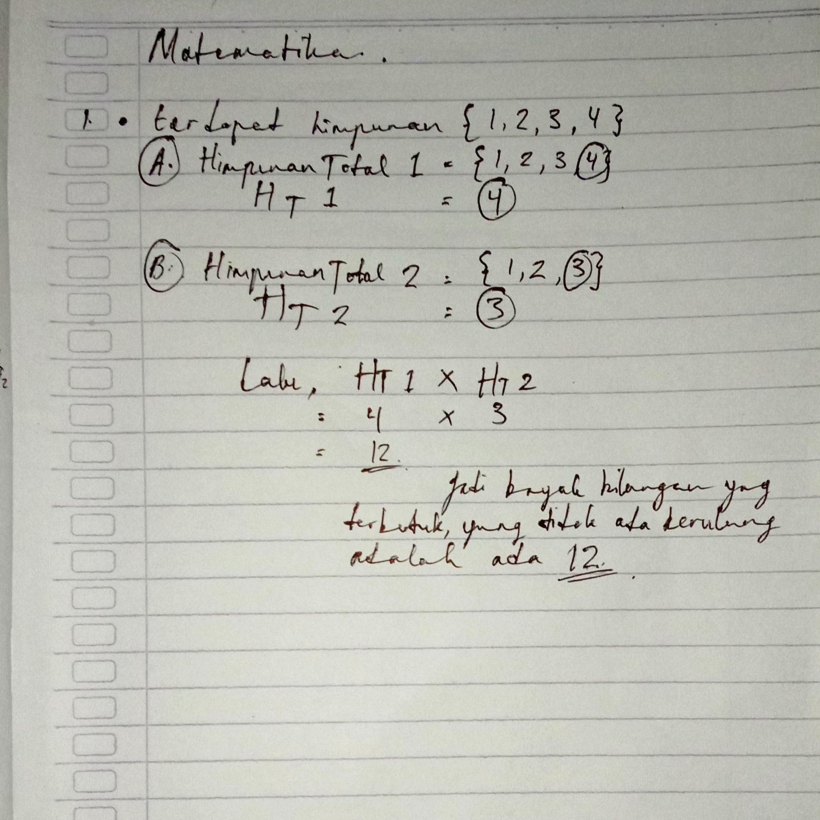 Matematika.
1. • terdapat himpunan { 1, 2, 3, 4 }
A. Himpunan Total 1 = { 1, 2, 3 4 }
HT 1 = 4
B. Himpunan Total 2 = { 1, 2, 3 }
HT 2 = 3
Lalu, HT 1 X HT 2
= 4 x 3
= 12.
Jadi bayak bilangan yng
terbetuk, yang titak ada berulang
adalah ada 12.